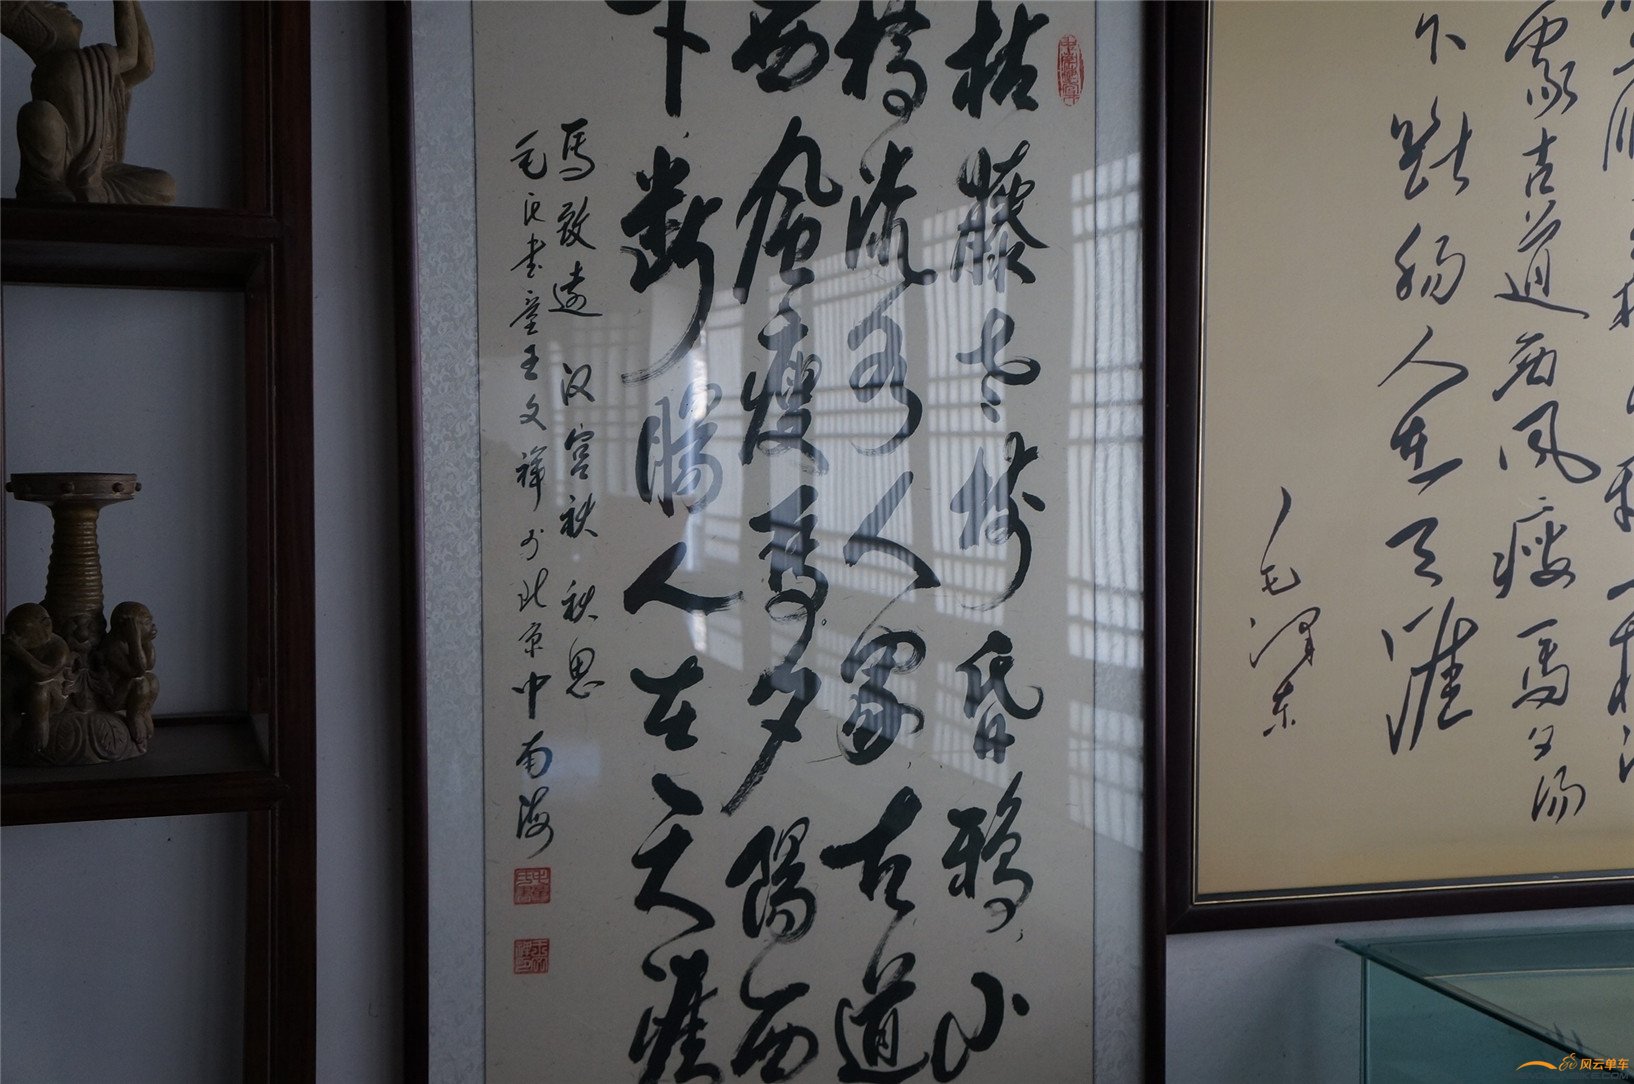 家古道西风瘦马夕阳
下断肠人在天涯
毛泽东
枯藤老树昏鸦小
橋流水人家古道
西風瘦马夕陽西
下断腸人在天涯
马致远 汉宫秋 秋思
毛氏书童王文祥于北京中南海
风云单车